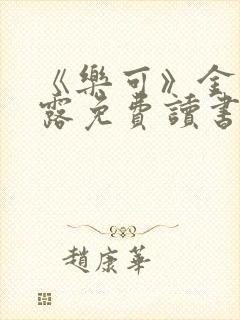 《樂可》金
露免費讀書
趙康華